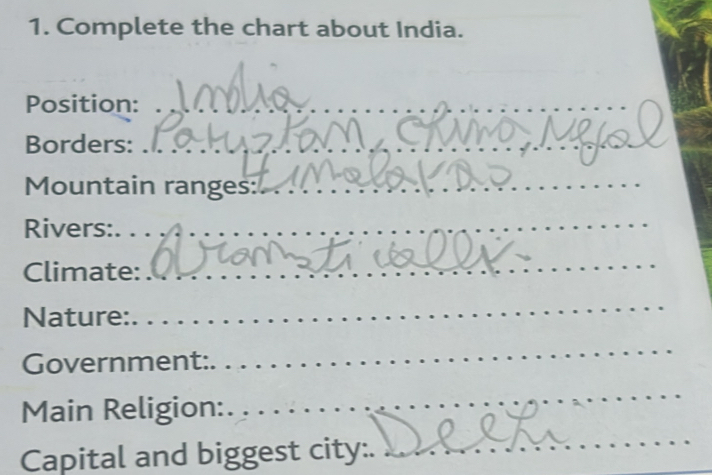 1. Complete the chart about India.
Position: India
Borders: Pakistan, China, Nepal
Mountain ranges: Himalayas
Rivers:
Climate: dramatically.
Nature:
Government:
Main Religion:
Capital and biggest city: Deehi